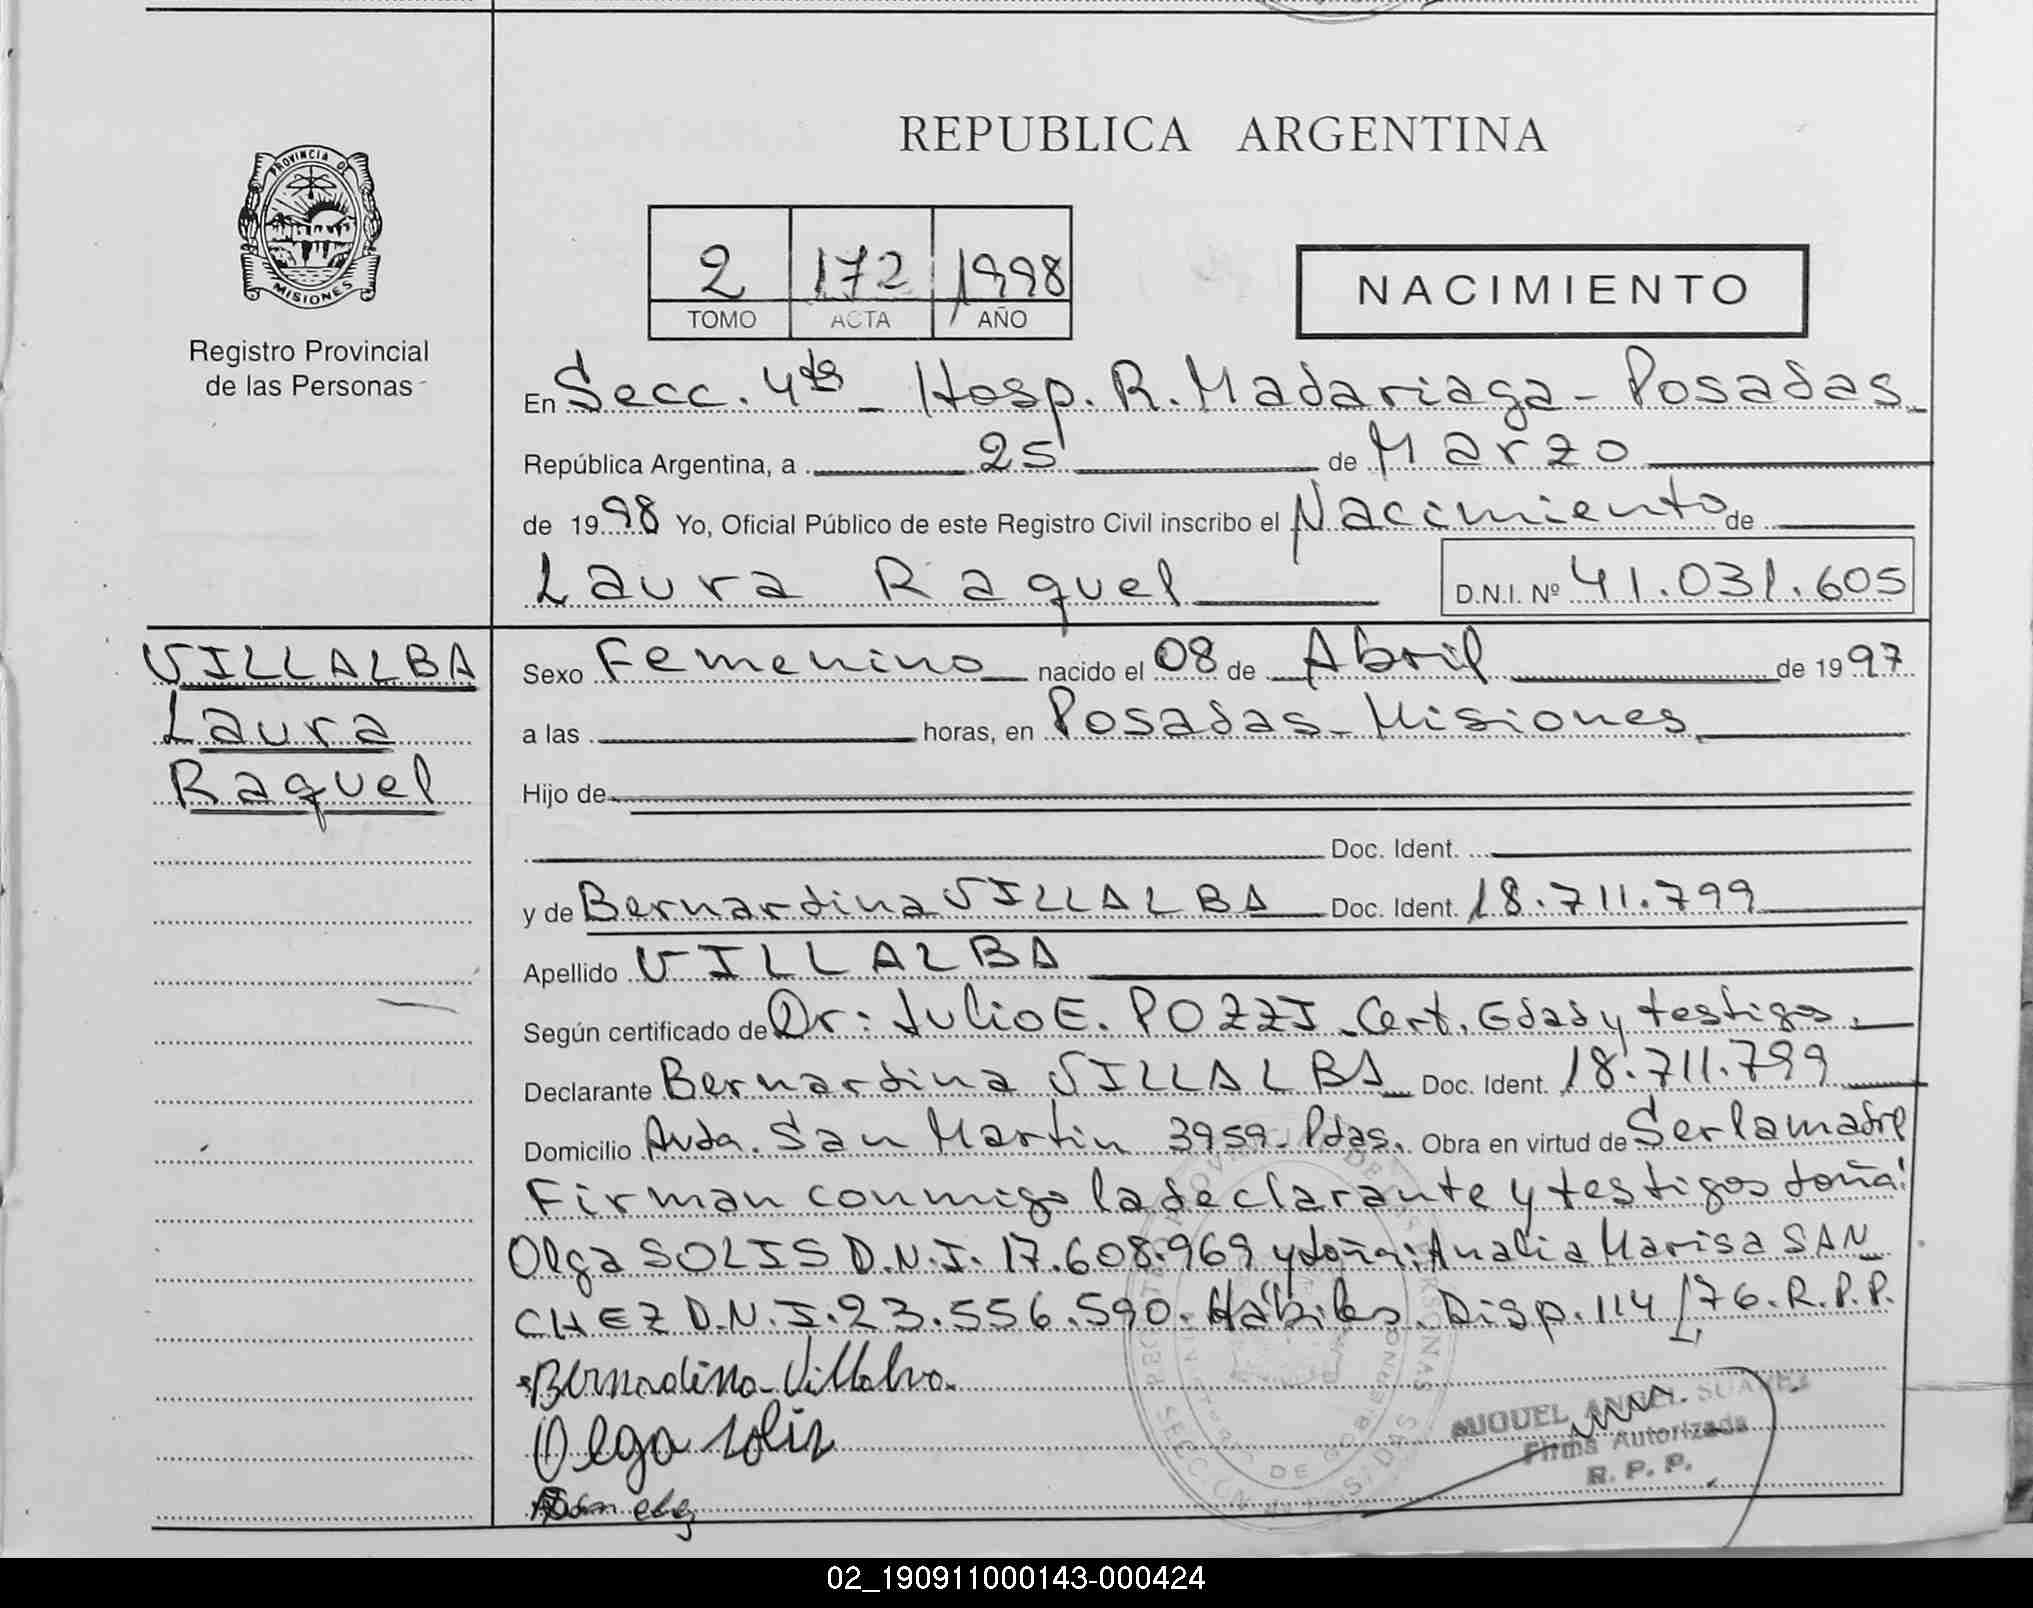 REPUBLICA ARGENTINA
PROVINCIA DE
MISIONES
Registro Provincial
de las Personas
2 172 1998
TOMO ACTA AÑO
NACIMIENTO
En Secc. 4ta - Hosp. R. Madariaga - Posadas
República Argentina, a 25 de Marzo
de 1998 Yo, Oficial Público de este Registro Civil inscribo el Nacimiento de
Laura Raquel D.N.I. Nº 41.031.605
VILLALBA
Laura
Raquel
Sexo Femenino nacido el 08 de Abril de 1997
a las horas, en Posadas - Misiones
Hijo de
Doc. Ident.
y de Bernardina VILLALBA Doc. Ident. 18.711.799
Apellido VILLALBA
Según certificado de Dr: Julio E. POZZI. Cert. Edad y testigos.
Declarante Bernardina VILLALBA Doc. Ident. 18.711.799
Domicilio Avda. San Martin 3959 - Pdas. Obra en virtud de Ser la madre
Firman conmigo la declarante y testigos doña:
Olga SOLIS D.N.I. 17.608.969 y doña: Analia Marisa SAN
CHEZ D.N.I. 23.556.590. Hábiles. Disp. 114/76. R.P.P.
Bernadina Villalva.
Olga Solis
MIGUEL ANGEL SUAREZ
Firma Autorizada
R. P. P.
02_190911000143-000424